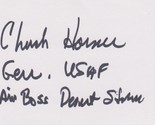 Chuck Horner
Gen. USAF
Air Boss Desert Storm